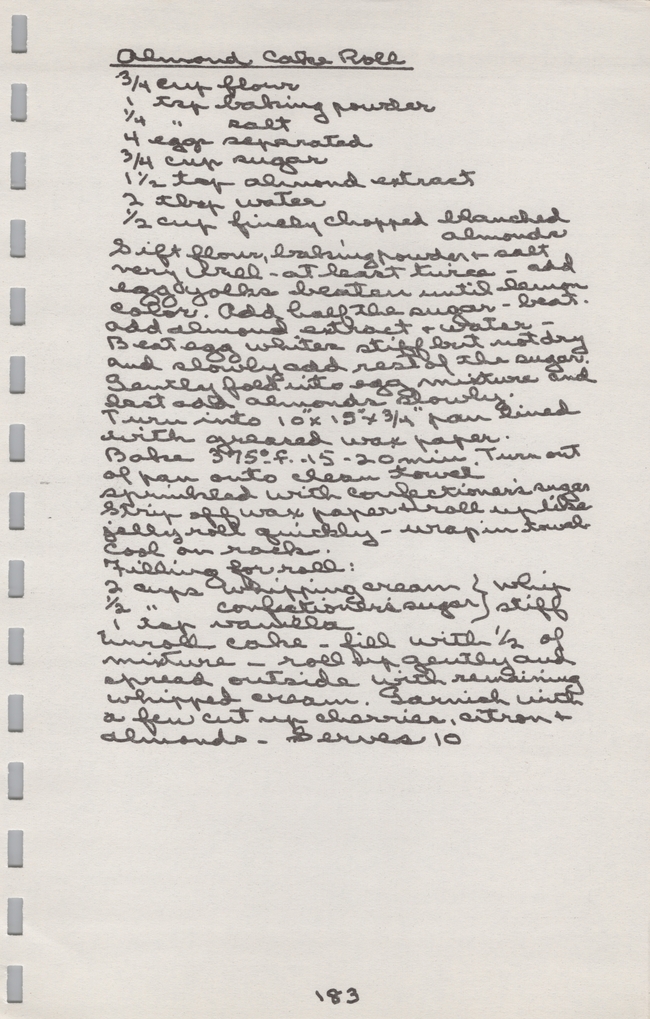 Almond Cake Roll
3/4 cup flour
1 tsp baking powder
1/4 " salt
4 eggs separated
3/4 cup sugar
1 1/2 tsp almond extract
2 tbsp water
1/2 cup finely chopped blanched
almonds
Sift flour, baking powder + salt
very well - at least twice - add
egg yolks beaten until lemon
color. Add half the sugar - beat.
add almond extract + water -
Beat egg whites stiff but not dry
and slowly add rest of the sugar.
Gently fold into egg mixture and
last add almonds slowly.
Turn into 10" x 15" x 3/4" pan lined
with greased wax paper.
Bake 375° F. 15 - 20 min. Turn out
of pan onto clean towel
sprinkled with confectioner's sugar
Strip off wax paper + roll up like
jelly roll quickly - wrap in towel
Cool on rack.
Filling for roll:
2 cups whipping cream } whip
1/2 " confectioner's sugar } stiff
1 tsp vanilla
Unroll cake - fill with 1/2 of
mixture - roll up gently and
spread outside with remaining
whipped cream. Garnish with
a few cut up cherries, citron +
almonds - Serves 10
183